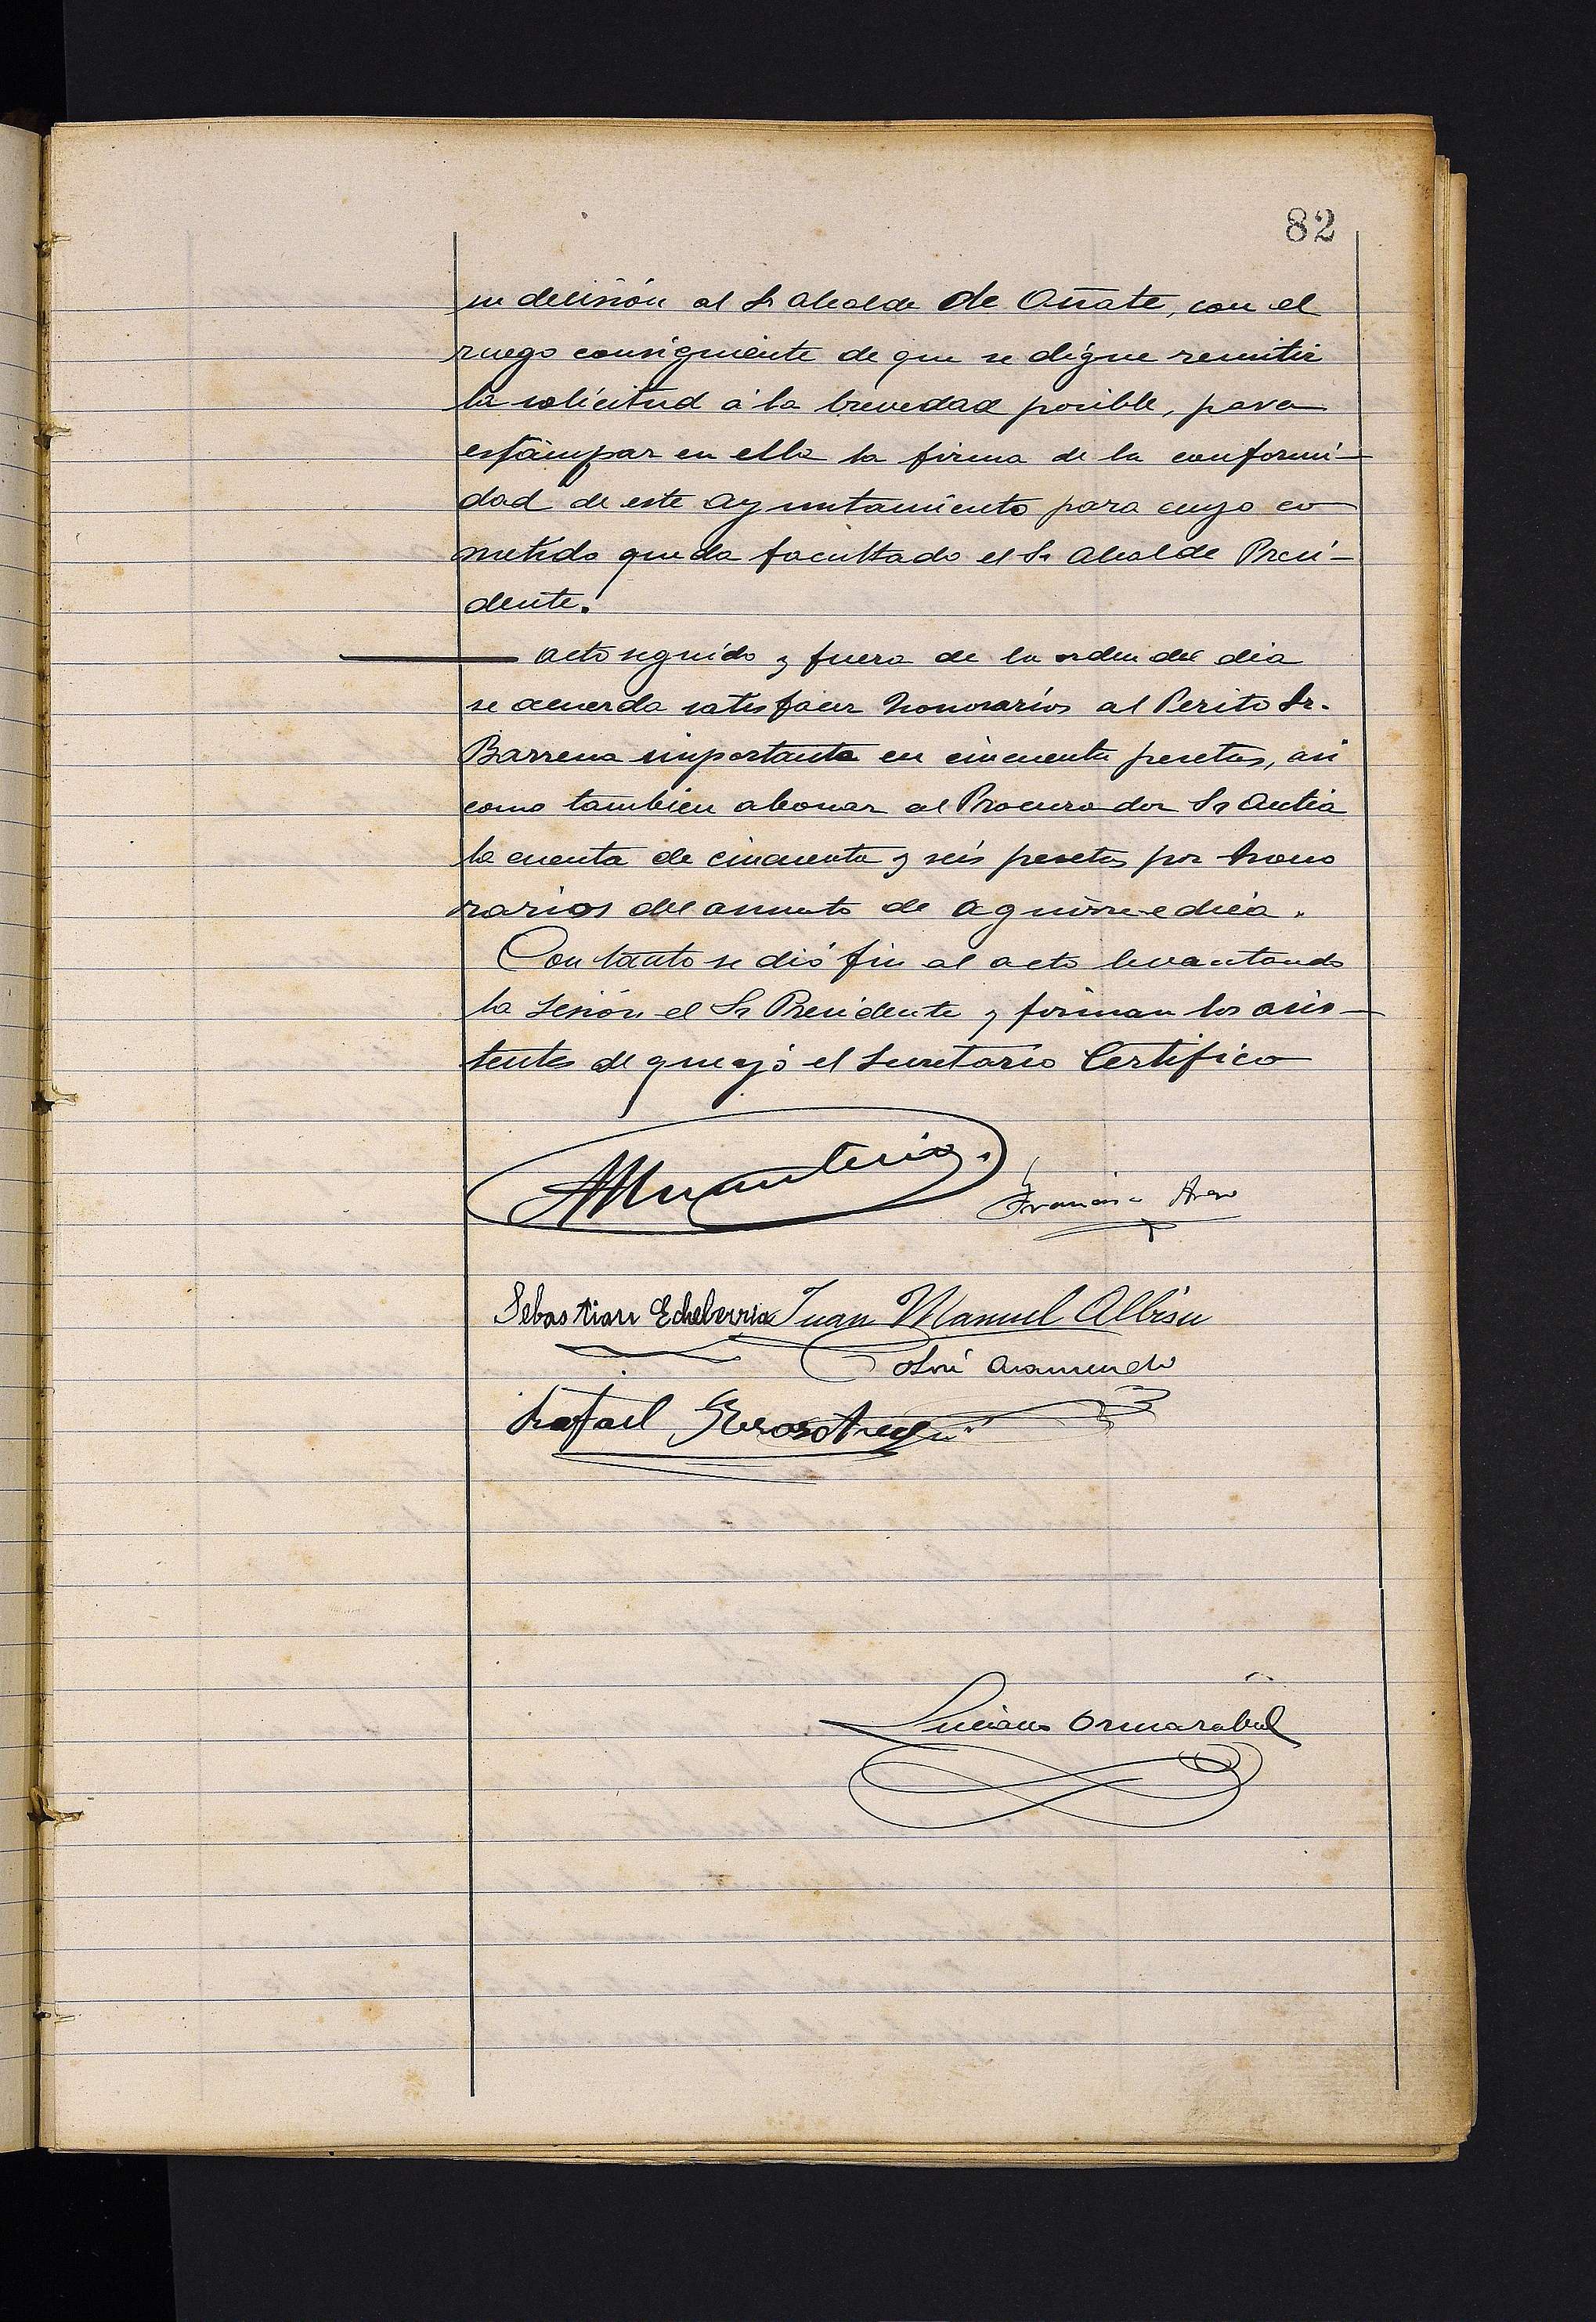 82
su decisión al Sr Alcalde de Oñate, con el
ruego consiguiente de que se digne remitir
la solicitud á la brevedad posible, para
estampar en ella la firma de la conformi-
dad de este Ayuntamiento para cuyo co
metido queda facultado el Sr Alcalde Presi-
dente.
Acto seguido y fuera de la orden del dia
se acuerda satisfacer honorarios al Perito Sr.
Barrena importante en cincuenta pesetas, asi
como tambien abonar al Procurador Sr Antia
la cuenta de cincuenta y seis pesetas por hono
rarios del asunto de
Con tanto se dió fin al acto levantando
la sesión el Sr Presidente y firman los asis-
tentes de que yo el Secretario Certifico
Sebastian Echeberria Juan Manuel Albisu
José Aramendi
Rafael
Luciano Ormazábal